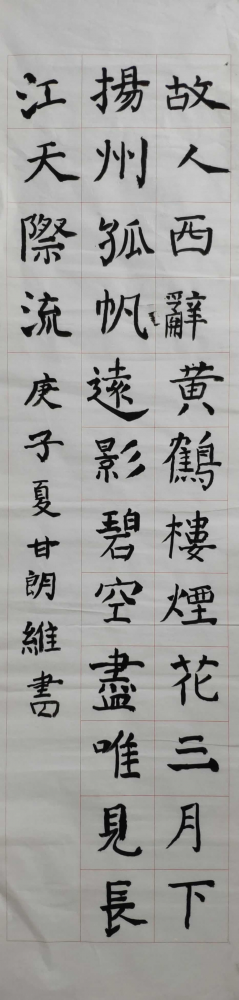 故人西辭黄鶴樓煙花三月下
揚州孤帆遠影碧空盡唯見長
江天際流
庚子夏甘朗維書